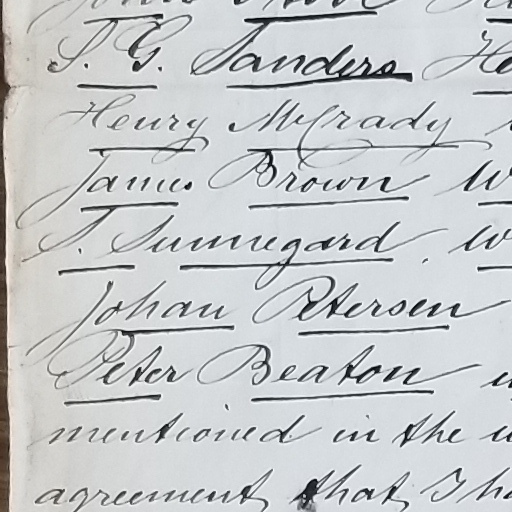 S. G. Sanders
Henry McCrady
James Brown
S. Sunnegard.
Johan Petersen
Peter Beaton
mentioned in the
agreement, that, I